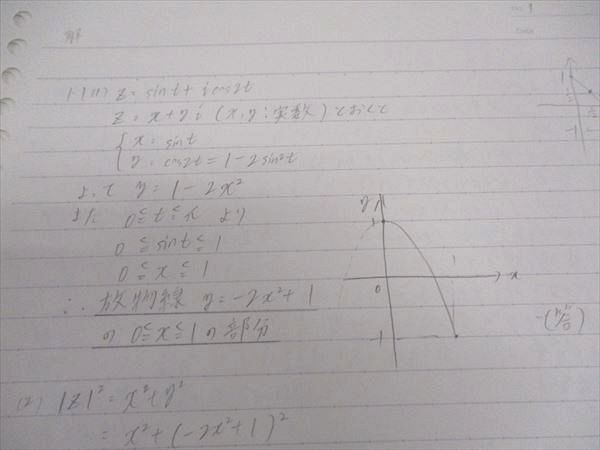 解
1-1 (1) z = sint + i cos2t
z = x + yi (x, y : 実数) とおくと
{ x = sint
y = cos2t = 1 - 2sin²t
よって y = 1 - 2x²
また 0 ≦ t ≦ π より
0 ≦ sint ≦ 1
0 ≦ x ≦ 1
∴ 放物線 y = -2x² + 1
の 0 ≦ x ≦ 1 の部分
y
1
1
0
x
-1
(2) |z|² = x² + y²
= x² + (-2x² + 1)²
1
-1